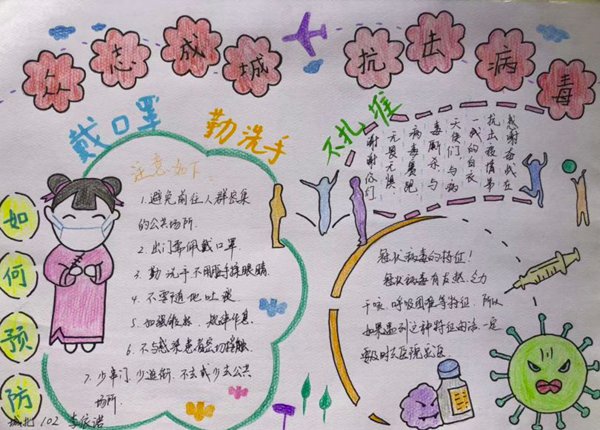 众志成城 抗击病毒
戴口罩 勤洗手 不扎堆
如何预防
注意如下
1.避免前往人群密集
的公共场所.
2.出门需佩戴口罩.
3.勤洗手不用脏手揉眼睛
4.不要随地吐痰
5.加强锻炼,规律作息.
6.不与感染患者密切接触.
7.少串门,少逛街,不去或少去公共
场所.
感谢奋战在
抗击疫情第
一线的白衣
天使们与病
毒厮杀与
病毒赛跑
无畏无惧
谢谢你们
冠状病毒的特征!
冠状病毒有发热、乏力
干咳、呼吸困难等特征,所以
如果遇到这种特征的话一定
要及时去医院就医
102 李依诺